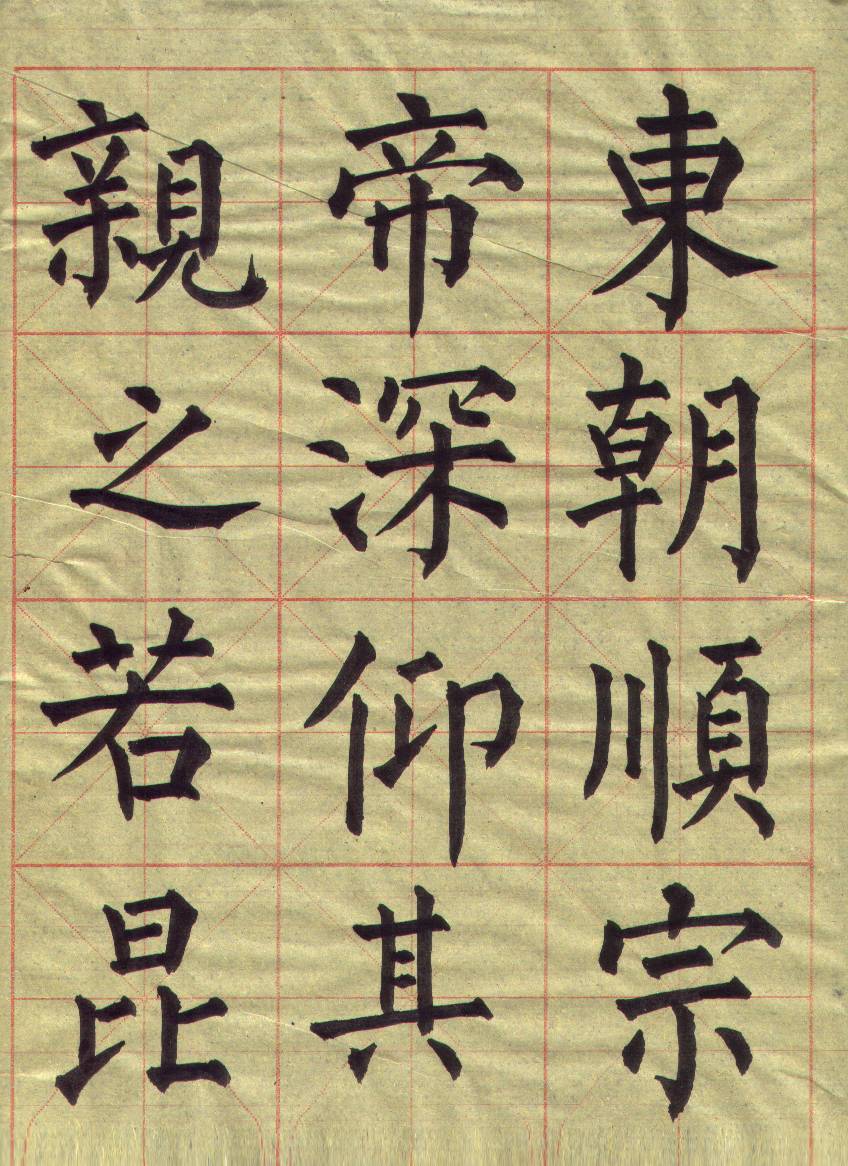 東朝順宗
帝深仰其
親之若昆